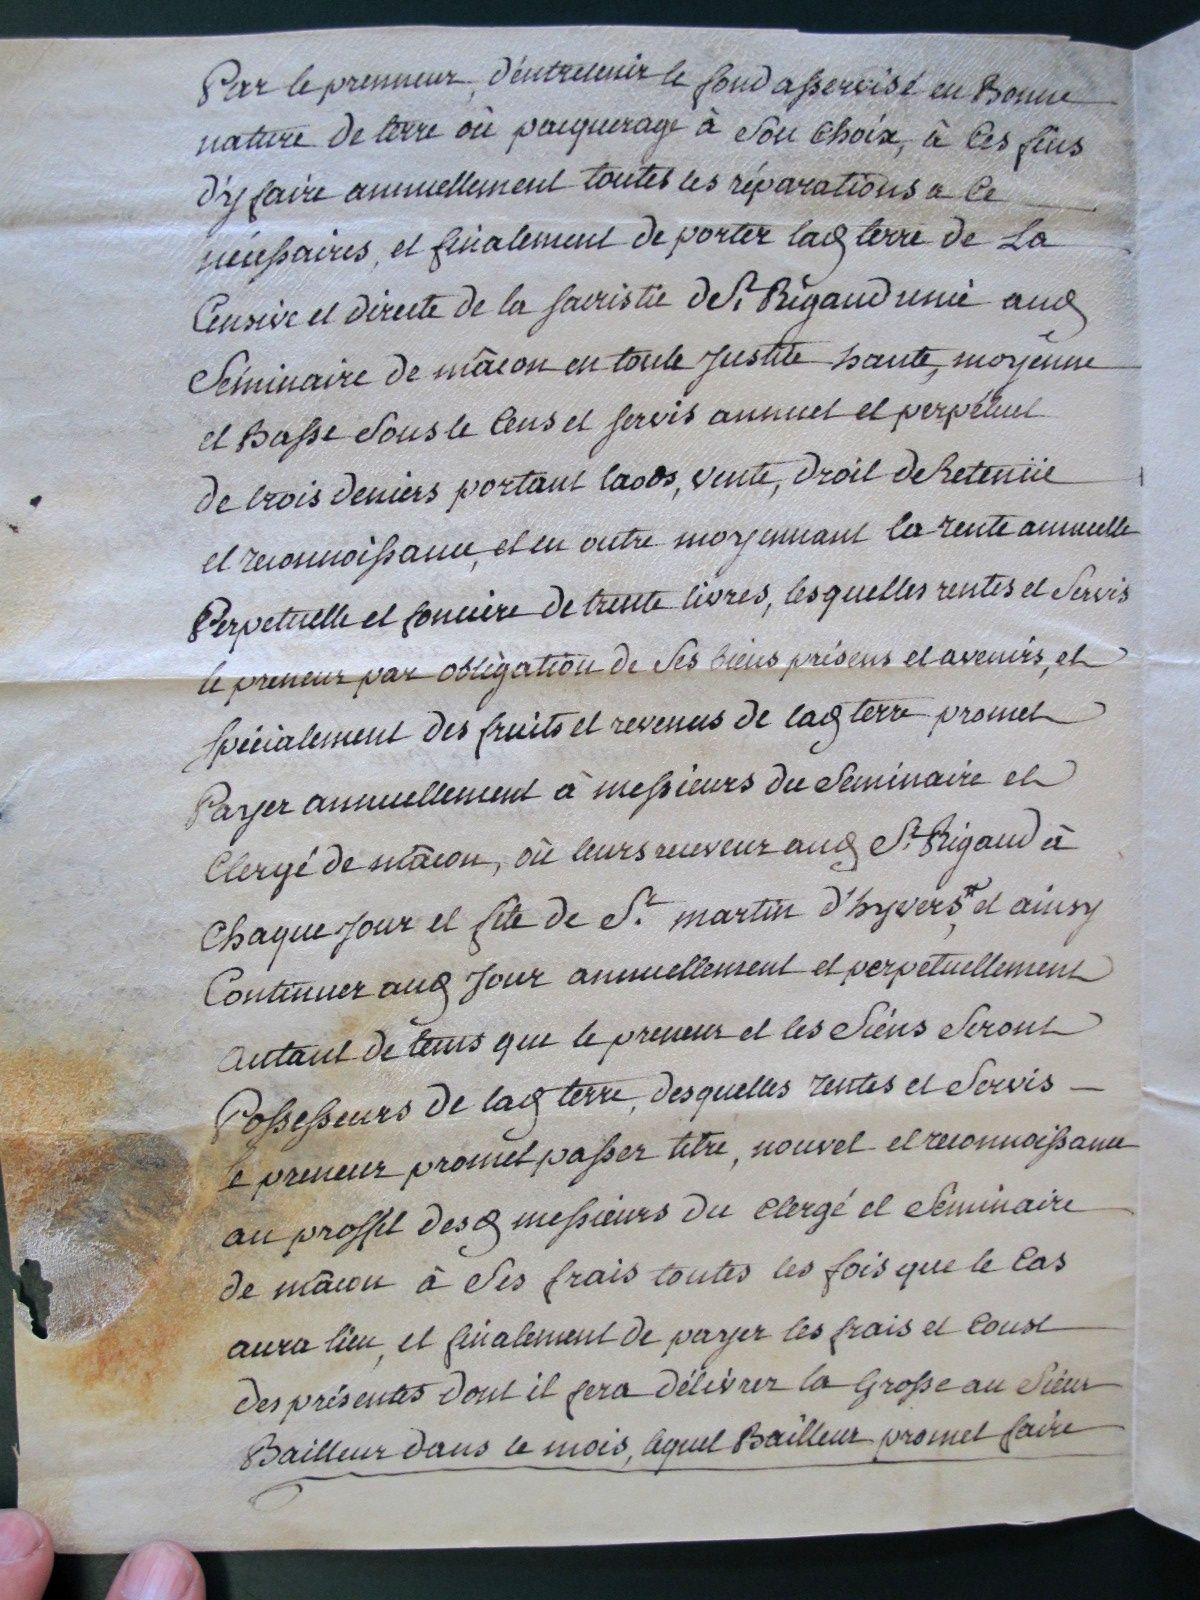 Par le prenneur, d'entretenir le fond asservisé en Bonne
nature de terre où paquerage à Son Choix, à Ces fins
d'y faire annuellement toutes les réparations a Ce
nécessaires, et finalement de porter lad terre de La
Censive et directe de la sacristie de St Rigaud unie aud
Séminaire de mâcon en toute Justice haute, moyenne
et Basse Sous le Cens et servis annuel et perpétuel
de trois deniers portant laods, vente, droit de Retenüe
et reconnoissance, et en outre moyennant la rente annuelle
Perpetuelle et fonciere de trente livres, lesquelles rentes et Servis
le preneur par obligation de Ses biens présens et avenirs, et
spécialement des fruits et revenus de lad terre promet
Payer annuellement à messieurs du Séminaire et
Clergé de mâcon, où leurs receveur aud St Rigaud à
Chaque Jour et fête de St martin d'hyvers, et ainsy
Continuer aud Jour annuellement et perpetuellement
autant de tems que le preneur et les Siens Seront
Possesseurs de lad terre, desquelles rentes et Servis
le preneur promet passer titre, nouvel et reconnoissance
au proffit desd messieurs du Clergé et Séminaire
de mâcon à Ses frais toutes les fois que le Cas
aura lieu, et finalement de payer les frais et Coust
des présentes dont il fera délivrer la Grosse au Sieur
Bailleur dans le mois, lequel Bailleur promet faire